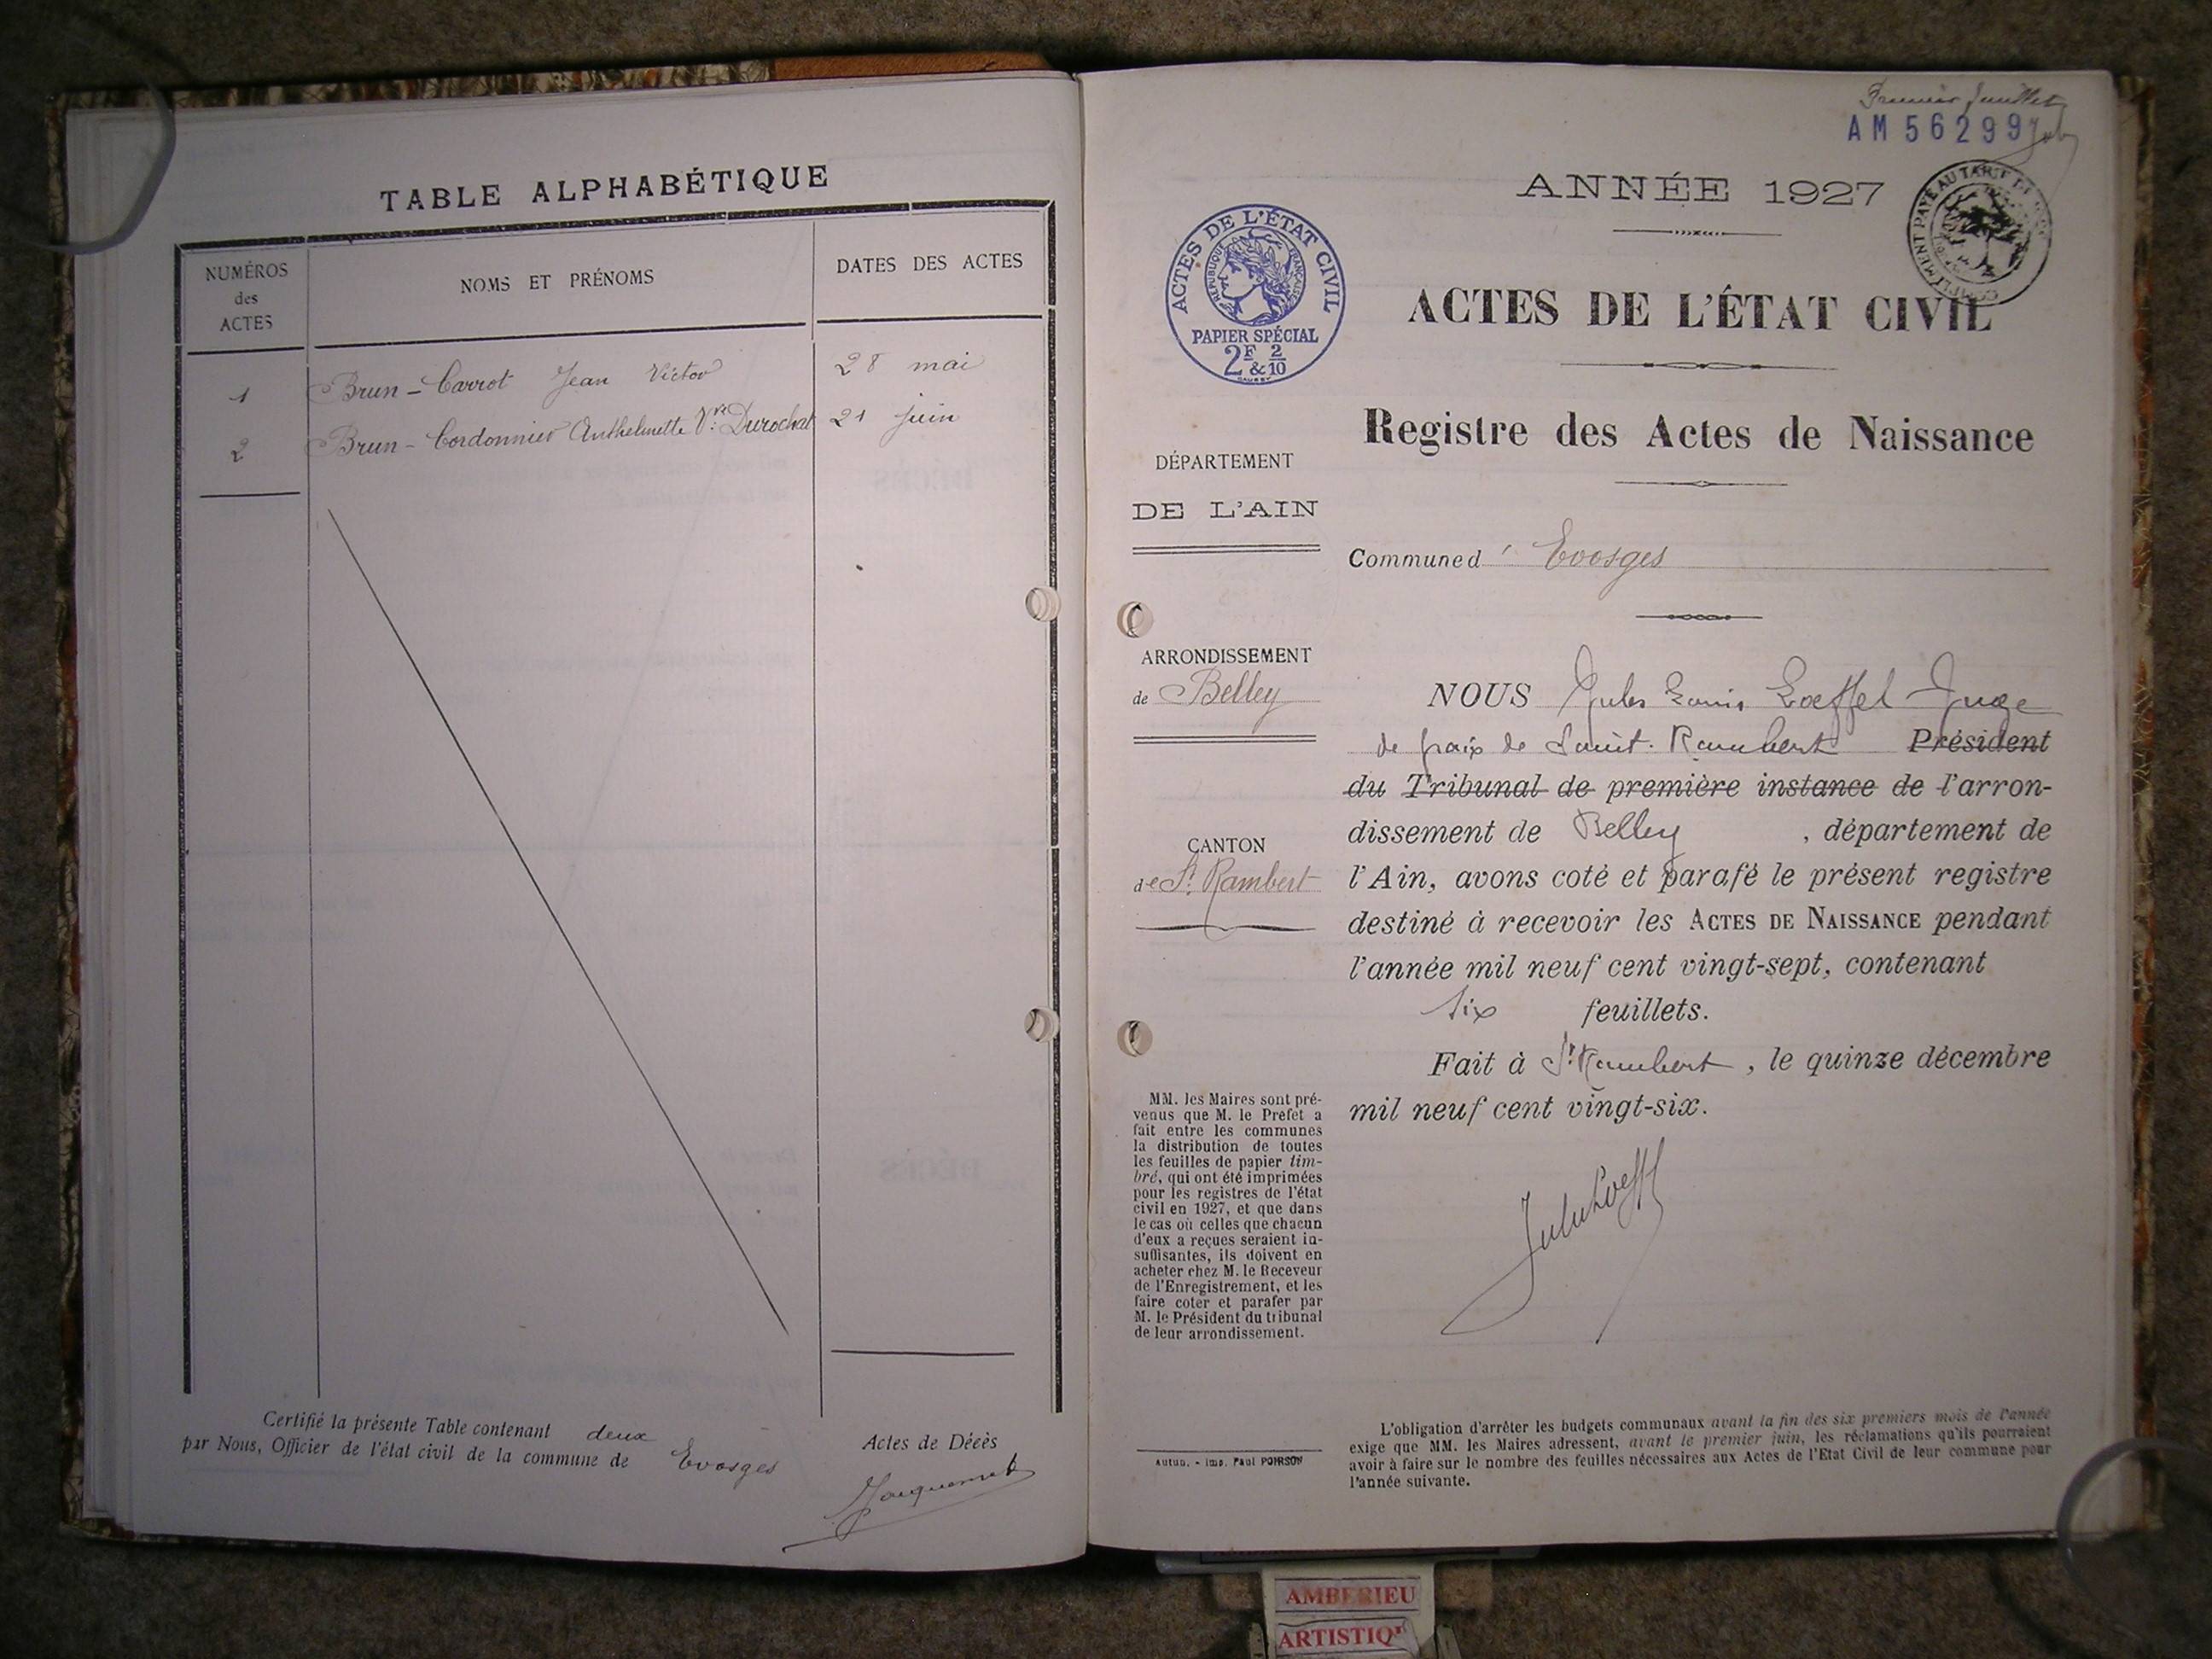 TABLE ALPHABÉTIQUE
NUMÉROS
des
ACTES
NOMS ET PRÉNOMS
DATES DES ACTES
1 Brun-Carrot Jean Victor 28 mai
2 Brun-Cordonnier Anthelmette Vve Durochat 21 juin
Certifié la présente Table contenant deux Actes de Décès
par Nous, Officier de l'état civil de la commune de Evosges
Premier feuillet
AM 56299
ANNÉE 1927
ACTES DE L'ÉTAT CIVIL
RÉPUBLIQUE FRANÇAISE
PAPIER SPÉCIAL
2F & 2/10
ACTES DE L'ÉTAT CIVIL
Registre des Actes de Naissance
DÉPARTEMENT
DE L'AIN
Commune d' Evosges
ARRONDISSEMENT
de Belley
CANTON
de St Rambert
NOUS Jules Louis Loeffel Juge
de paix de Saint-Rambert Président
du Tribunal de première instance de l'arron-
dissement de Belley, département de
l'Ain, avons coté et parafé le présent registre
destiné à recevoir les ACTES DE NAISSANCE pendant
l'année mil neuf cent vingt-sept, contenant
six feuillets.
Fait à St Rambert, le quinze décembre
mil neuf cent vingt-six.
MM. les Maires sont pré-
venus que M. le Préfet a
fait entre les communes
la distribution de toutes
les feuilles de papier tim-
bré, qui ont été imprimées
pour les registres de l'état
civil en 1927, et que dans
le cas où celles que chacun
d'eux a reçues seraient in-
suffisantes, ils doivent en
acheter chez M. le Receveur
de l'Enregistrement, et les
faire coter et parafer par
M. le Président du tribunal
de leur arrondissement.
Autun. - Imp. Paul POIRSON
L'obligation d'arrêter les budgets communaux avant la fin des six premiers mois de l'année
exige que MM. les Maires adressent, avant le premier juin, les réclamations qu'ils pourraient
avoir à faire sur le nombre des feuilles nécessaires aux Actes de l'Etat Civil de leur commune pour
l'année suivante.
AMBERIEU
ARTISTIQ